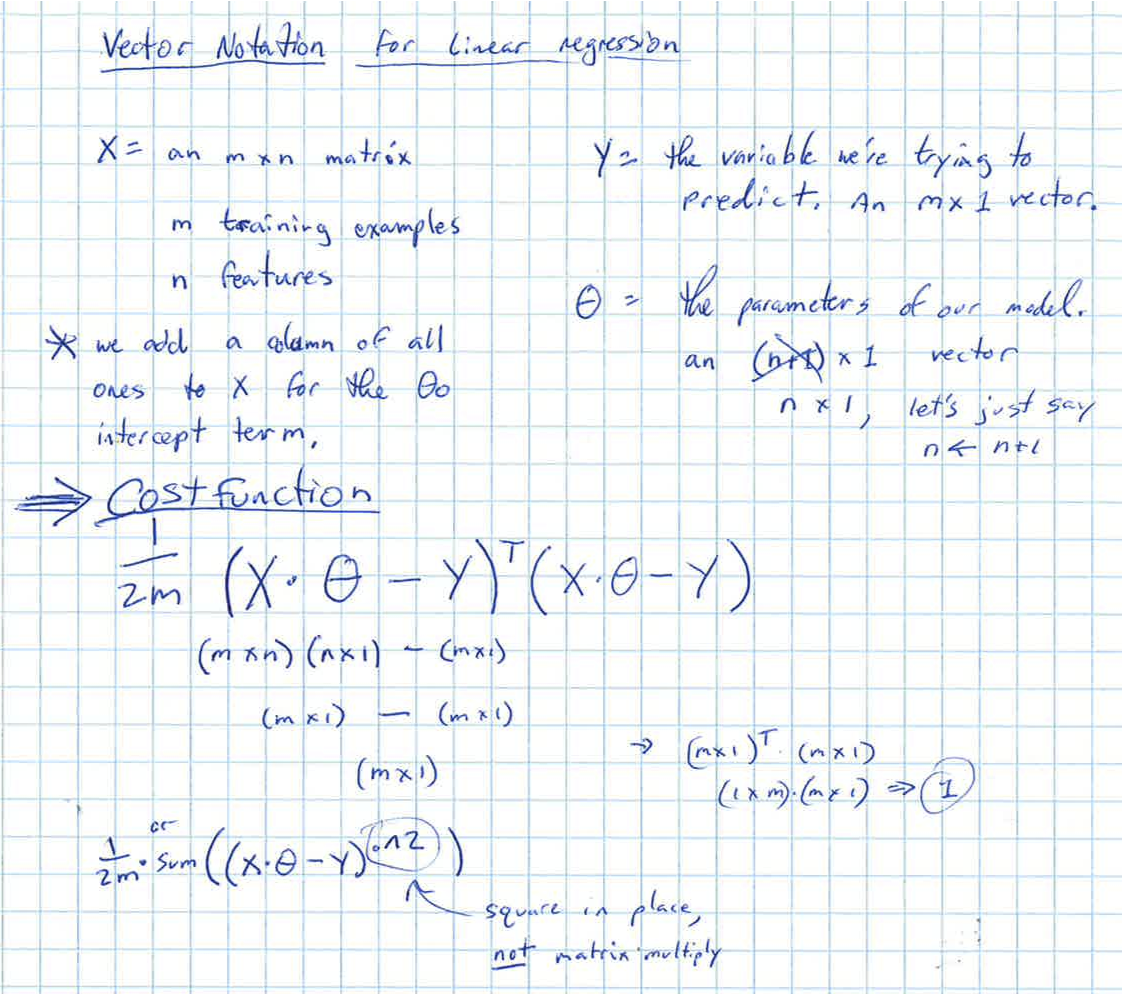 Vector Notation for linear regression
X = an m x n matrix
m training examples
n features
* we add a column of all
ones to X for the θ0
intercept term.
Y = the variable we're trying to
predict. An m x 1 vector.
θ = the parameters of our model.
an (n+1) x 1 vector
n x 1, let's just say
n ← n+1
⇒ Cost function
1/2m (X · θ - Y)^T (X · θ - Y)
(m x n) (n x 1) - (m x 1)
(m x 1) - (m x 1)
(m x 1)
→ (m x 1)^T · (m x 1)
(1 x m) · (m x 1) ⇒ 1
or
1/2m · sum((X · θ - Y).^2)
square in place,
not matrix multiply